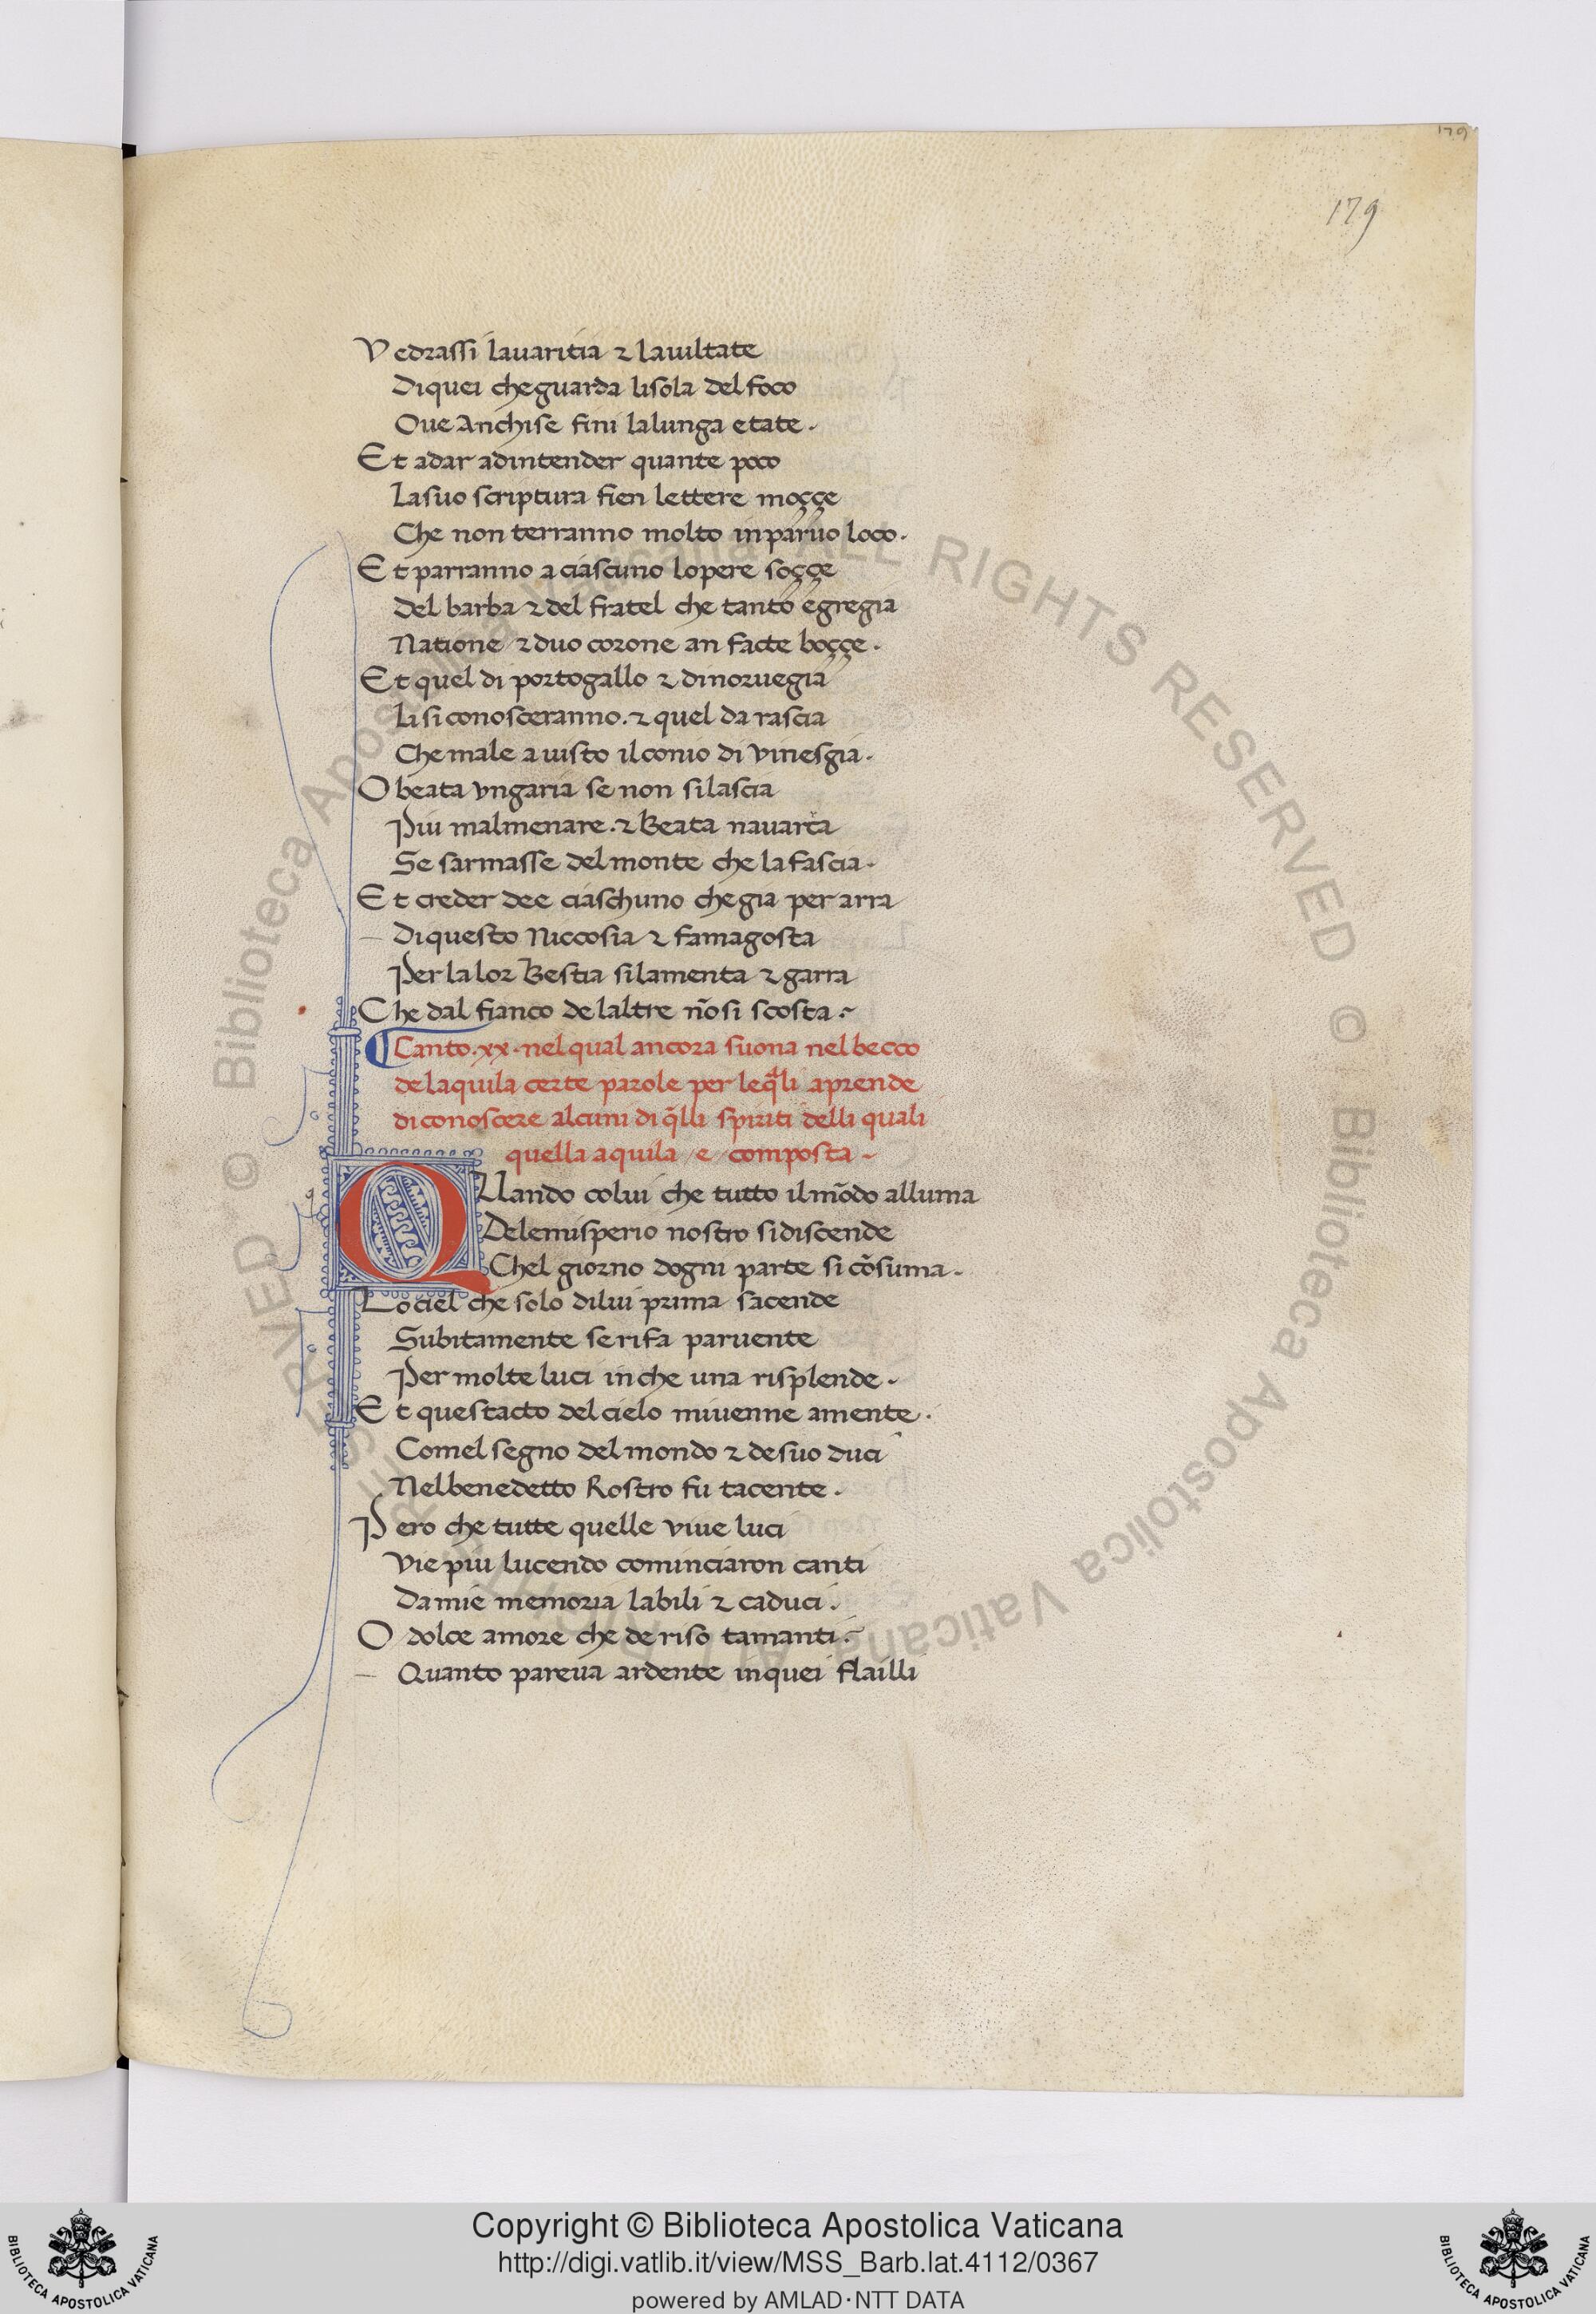 179
179
Vedrassi lauaritia & lauiltate
Diquei cheguarda lisola delfoco
Oue Anchise fini lalunga etate.
Et adar adintender quante poco
Lasuo scriptura fien lettere moççe
Che non terranno molto inparuo loco.
Et parranno aciascuno lopere soççe
Del barba & del fratel che tanto egregia
Natione & duo corone an facte boççe.
Et quel di portogallo & dinoruegia
Li si conosceranno. & quel da rascia
Che male a uisto ilconio di vinesgia.
O beata vngaria se non silascia
Piu malmenare. & Beata nauarra
Se sarmasse delmonte che la fascia.
Et creder dee ciaschuno chegia per arra
Diquesto Niccosia & famagosta
Per la lor Bestia silamenta & garra
Che dal fianco delaltre nõ si scosta.
Canto.xx.nelqual ancora suona nelbecco
delaquila certe parole per leq̃li aprende
diconoscere alcuni di q̃lli spiriti delli quali
quella aquila e composta
QUando colui che tutto ilmõdo alluma
Delemisperio nostro sidiscende
Chel giorno dogni parte si cõsuma.
Lo ciel che solo dilui prima sacende
Subitamente serifa paruente
Per molte luci inche una risplende.
Et questacto delcielo miuenne amente.
Comel segno delmondo & desuo duci
Nelbenedetto Rostro fu tacente.
Pero che tutte quelle viue luci
Vie piu lucendo cominciaron canti
Damie memoria labili & caduci.
O dolce amore che de riso tamanti.
Quanto pareua ardente inquei flailli
© Biblioteca Apostolica Vaticana ALL RIGHTS RESERVED © Biblioteca Apostolica Vaticana ALL RIGHTS RESERVED
Copyright © Biblioteca Apostolica Vaticana
http://digi.vatlib.it/view/MSS_Barb.lat.4112/0367
powered by AMLAD·NTT DATA
BIBLIOTECA APOSTOLICA VATICANA
BIBLIOTECA APOSTOLICA VATICANA